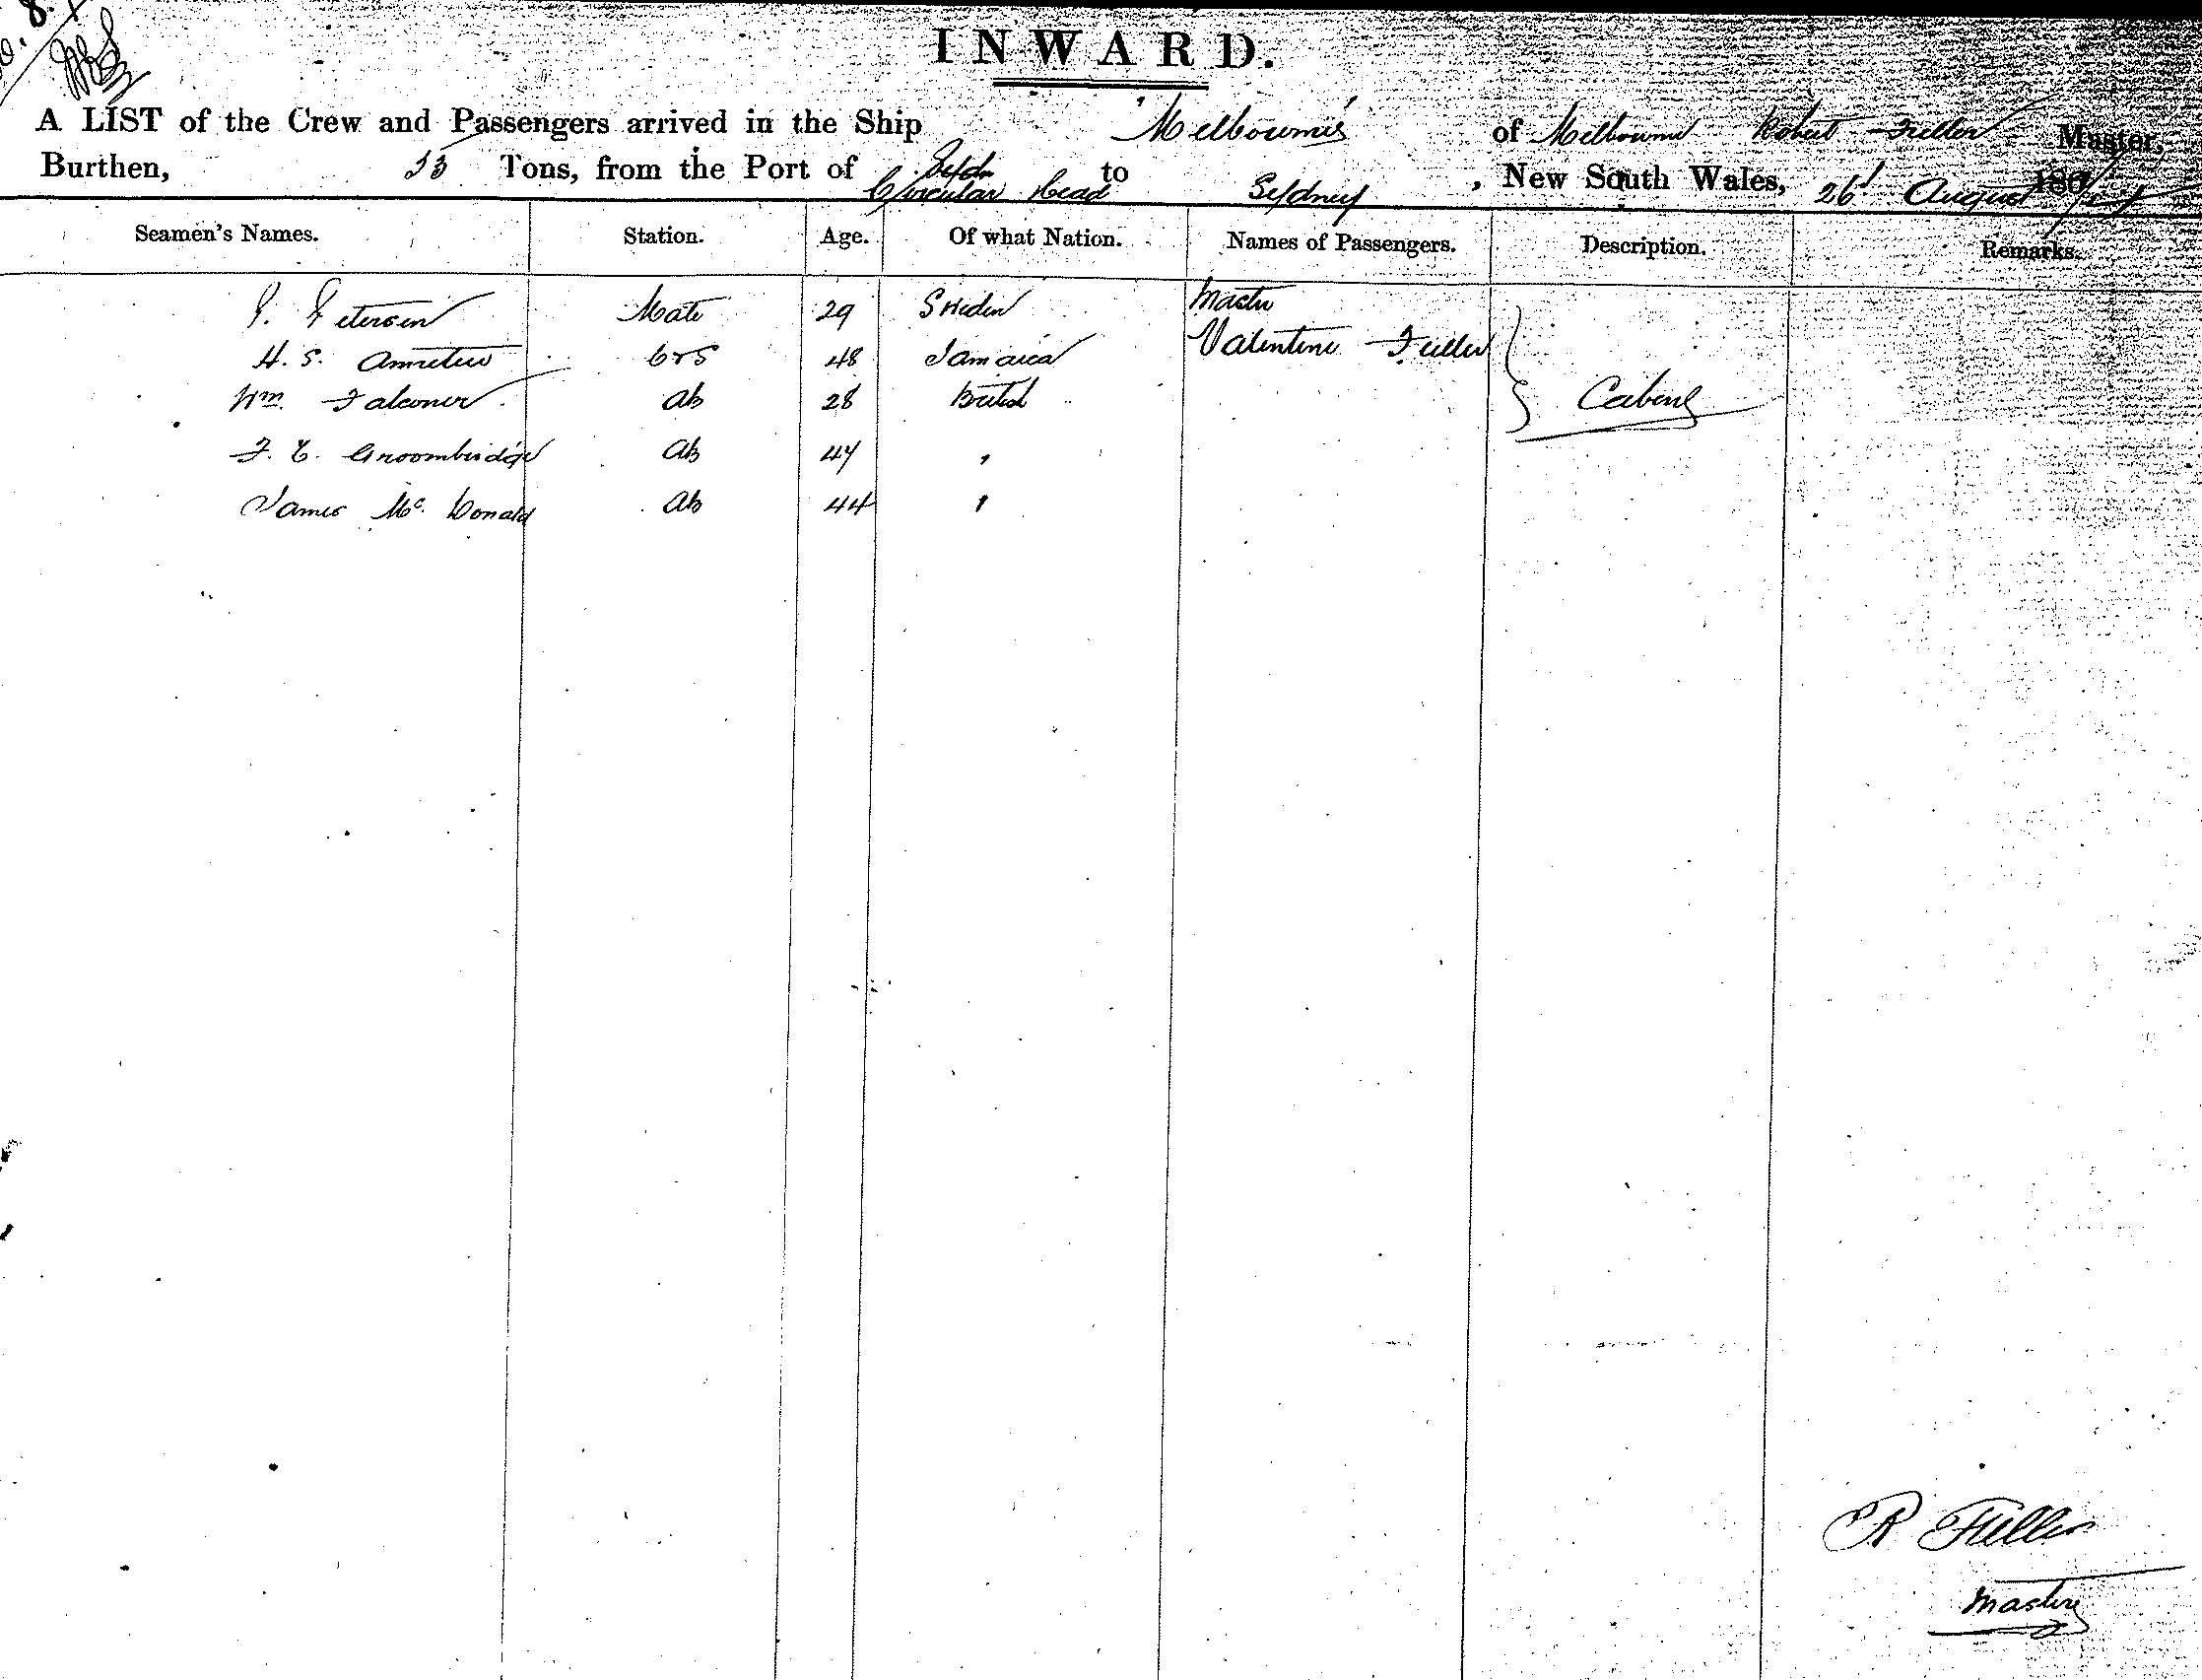 INWARD.
A LIST of the Crew and Passengers arrived in the Ship of Melbourne Robert Fuller Master,
Burthen, 53 Tons, from the Port of Circular Head to Sydney, New South Wales, 26 August 18
Seamen's Names. Station. Age. Of what Nation. Names of Passengers. Description. Remarks.
Petersen Mate 29 Sweden Master
H. S. 48 Jamaica Valentine Fuller
Wm. Falconer ab 28 British Cabin
F. E. Groombridge ab 47 "
James Mc. Donald ab 44 "
R Fuller
Master